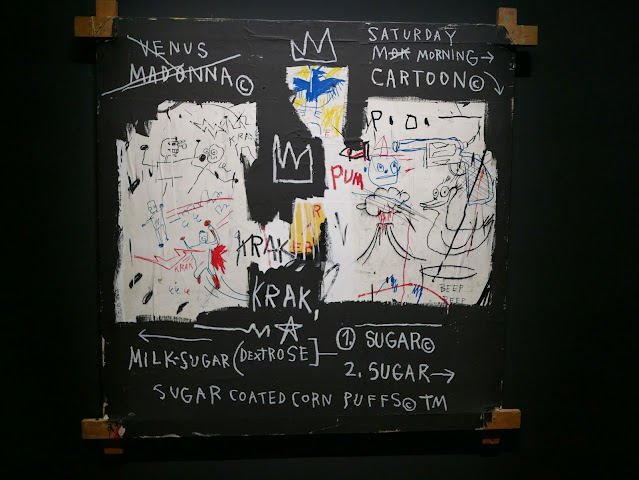 VENUS
MADONNA©
SATURDAY
MOK MORNING→
CARTOON©
P.O.
KRAK
PUM
R
KRAK
EB
KRAK
KRAK,
BEEP
BEEP
MILK-SUGAR (DEXTROSE)
1. SUGAR©
2. SUGAR→
SUGAR COATED CORN PUFFS© TM